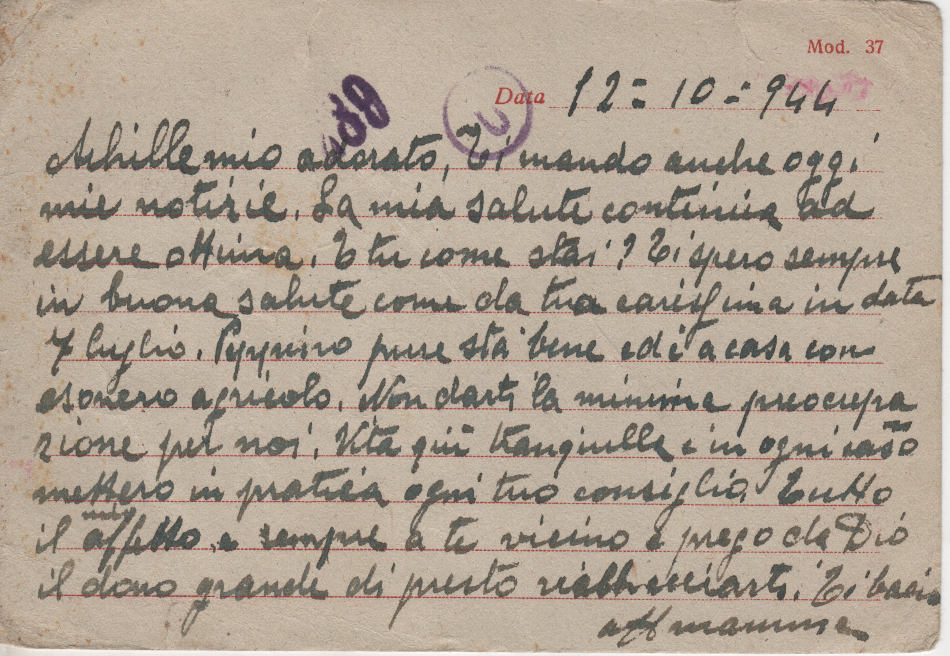 Mod. 37
Data 12=10=944
Achille mio adorato, Ti mando anche oggi
mie notizie. La mia salute continua ad
essere ottima. E tu come stai? Ti spero sempre
in buona salute come da tua carissima in data
7 luglio. Peppino pure sta bene ed è a casa con
esonero agricolo. Non darti la minima preoccupa
zione per noi. Vita qui tranquilla e in ogni caso
metterò in pratica ogni tuo consiglio. Tutto
il mio affetto e sempre a te vicino e prego da Dio
il dono grande di presto riabbracciarti. Ti bacio
aff mamma